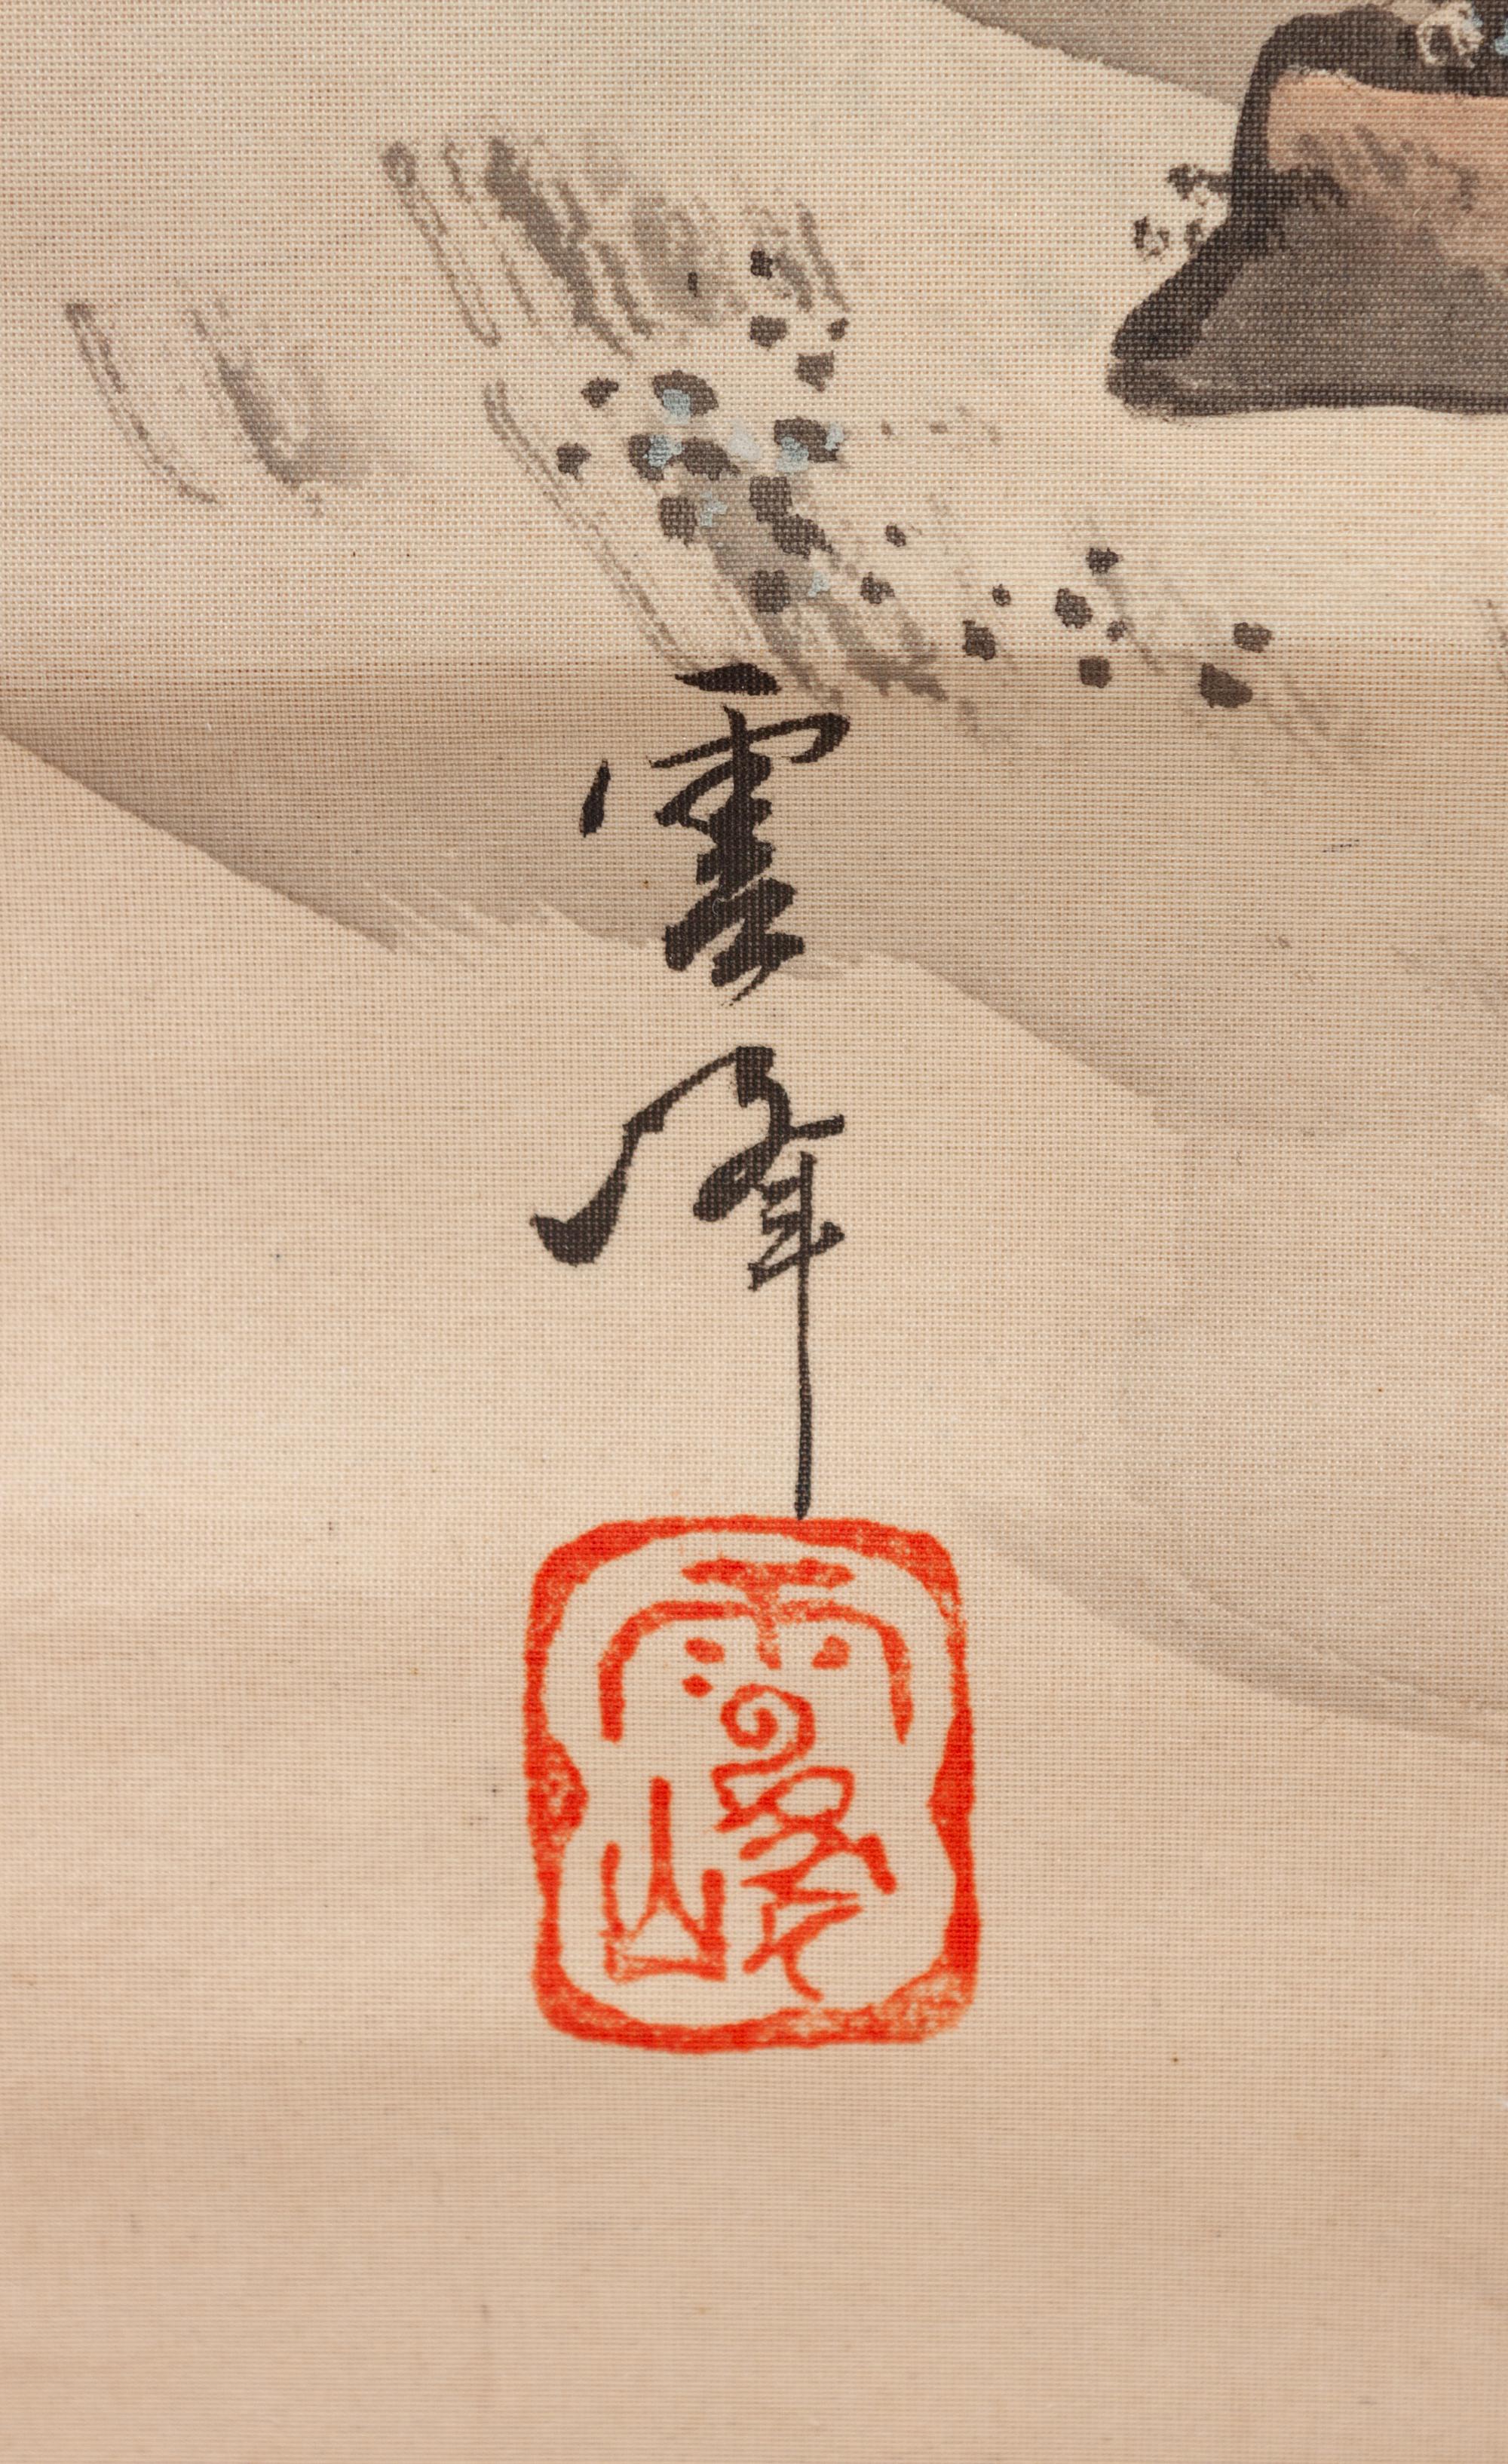 雲峰
雲峰